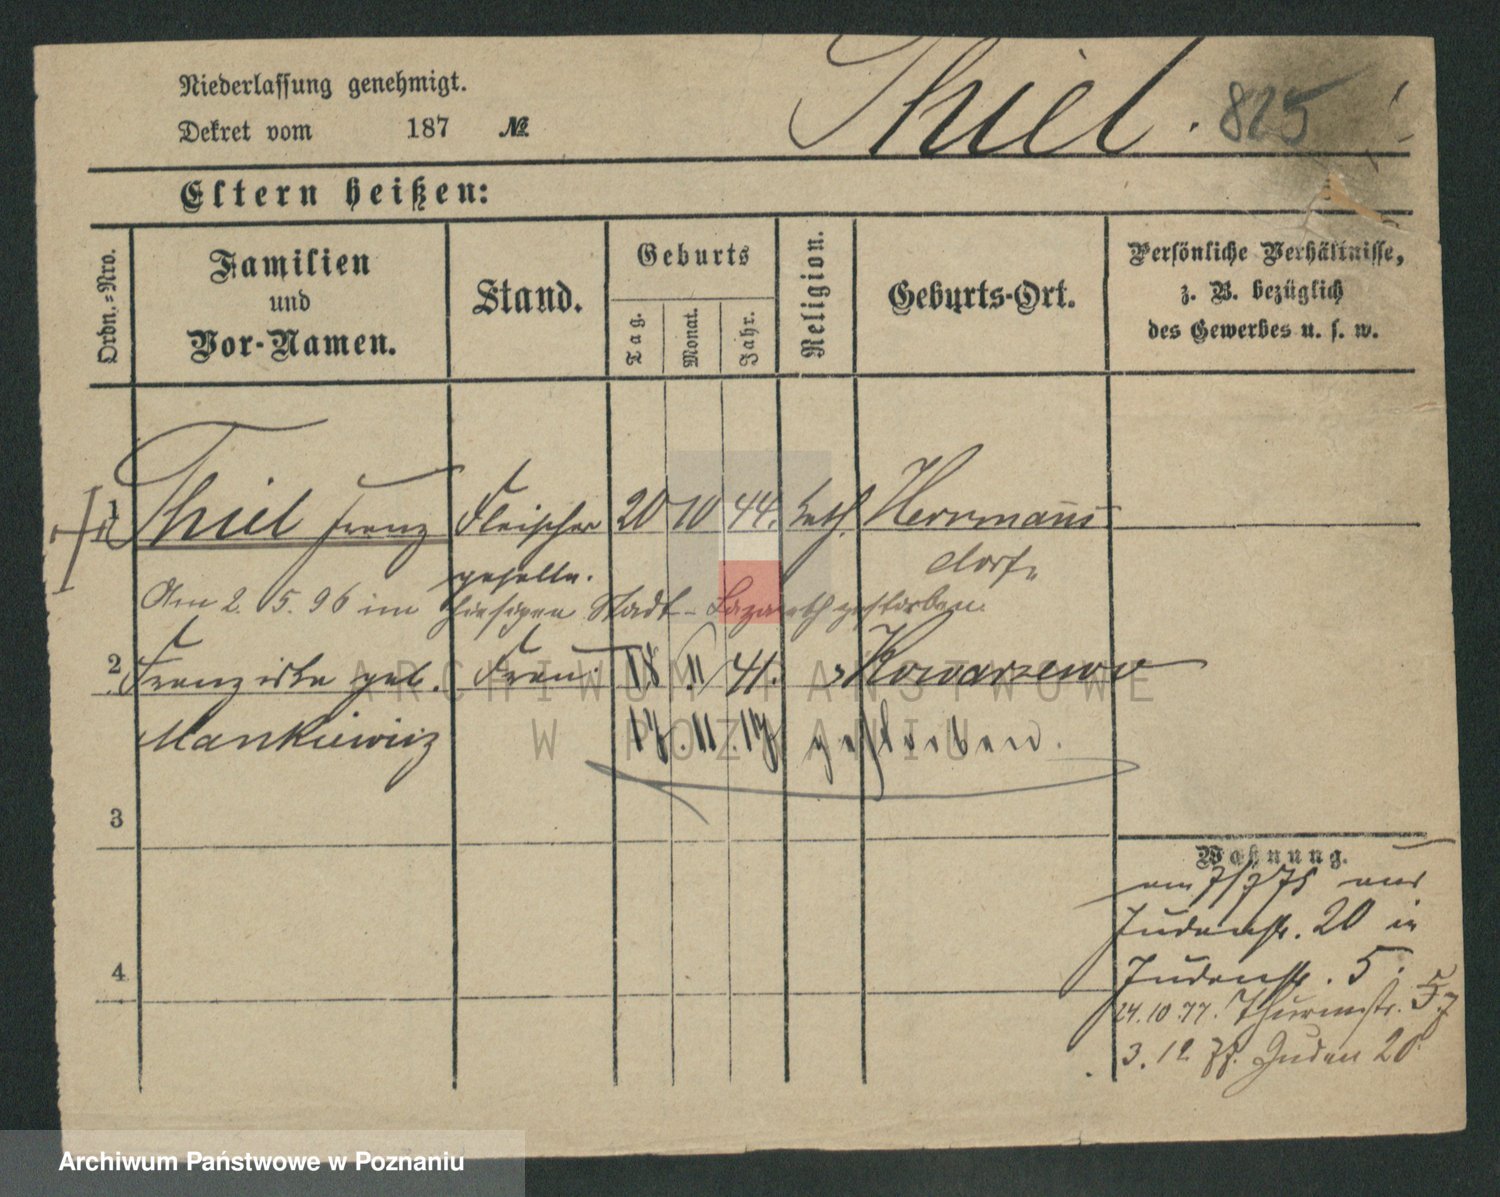 Niederlassung genehmigt.
Thiel. 825
Dekret vom 187 №
Eltern heißen:
Ordn.=Nro.
Familien
und
Vor-Namen.
Stand.
Geburts
Tag.
Monat.
Jahr.
Religion.
Geburts-Ort.
Persönliche Verhältnisse,
z. B. bezüglich
des Gewerbes u. s. w.
1 Thiel Franz Fleischer 20 10 44. kath. Herrmanns
geselle. dorf.
Am 2. 5. 96 im hiesigen Stadt-Lazareth gestorben.
2 Franziska geb. Frau. 18 11 41. " Kowarzewo
Mankiewicz 17. 11. gestorben.
3
4
Wohnung.
am 7/9 75 aus
Judenstr. 20 in
Judenstr. 5.
24.10.77. Thurmstr. 5.
3. 12. Juden 20
ARCHIWUM PAŃSTWOWE
W POZNANIU
Archiwum Państwowe w Poznaniu